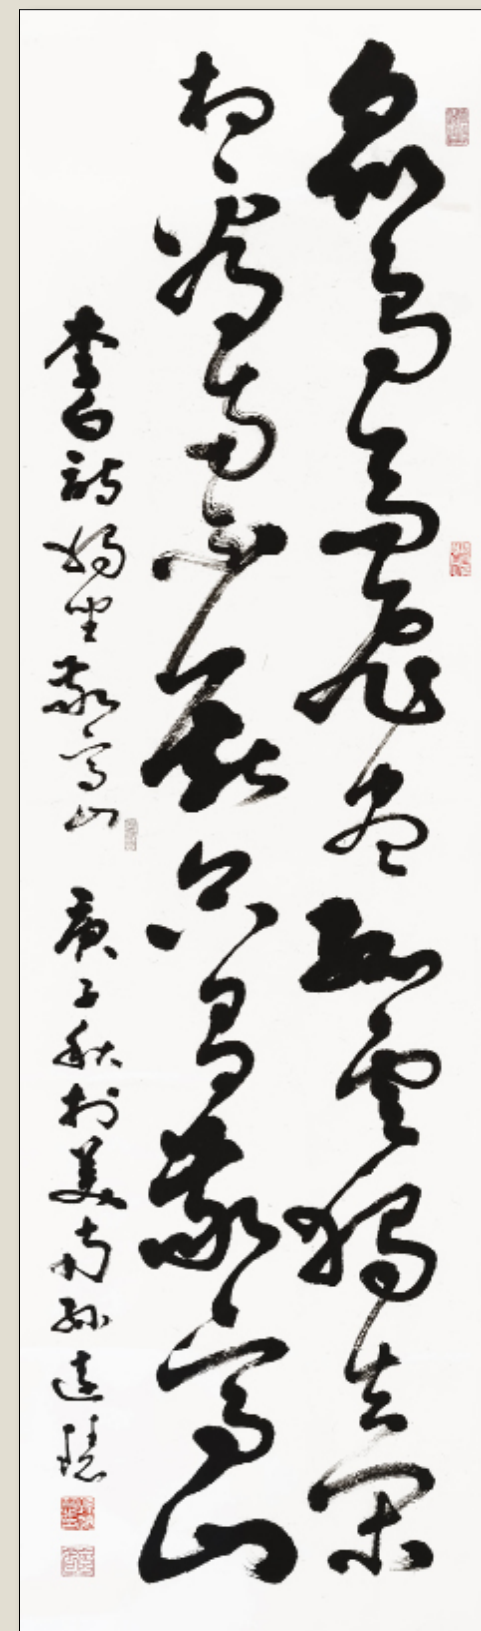 眾鳥高飛盡孤雲獨去閑
相看兩不厭只有敬亭山
李白詩獨坐敬亭山 庚子秋於美南孫